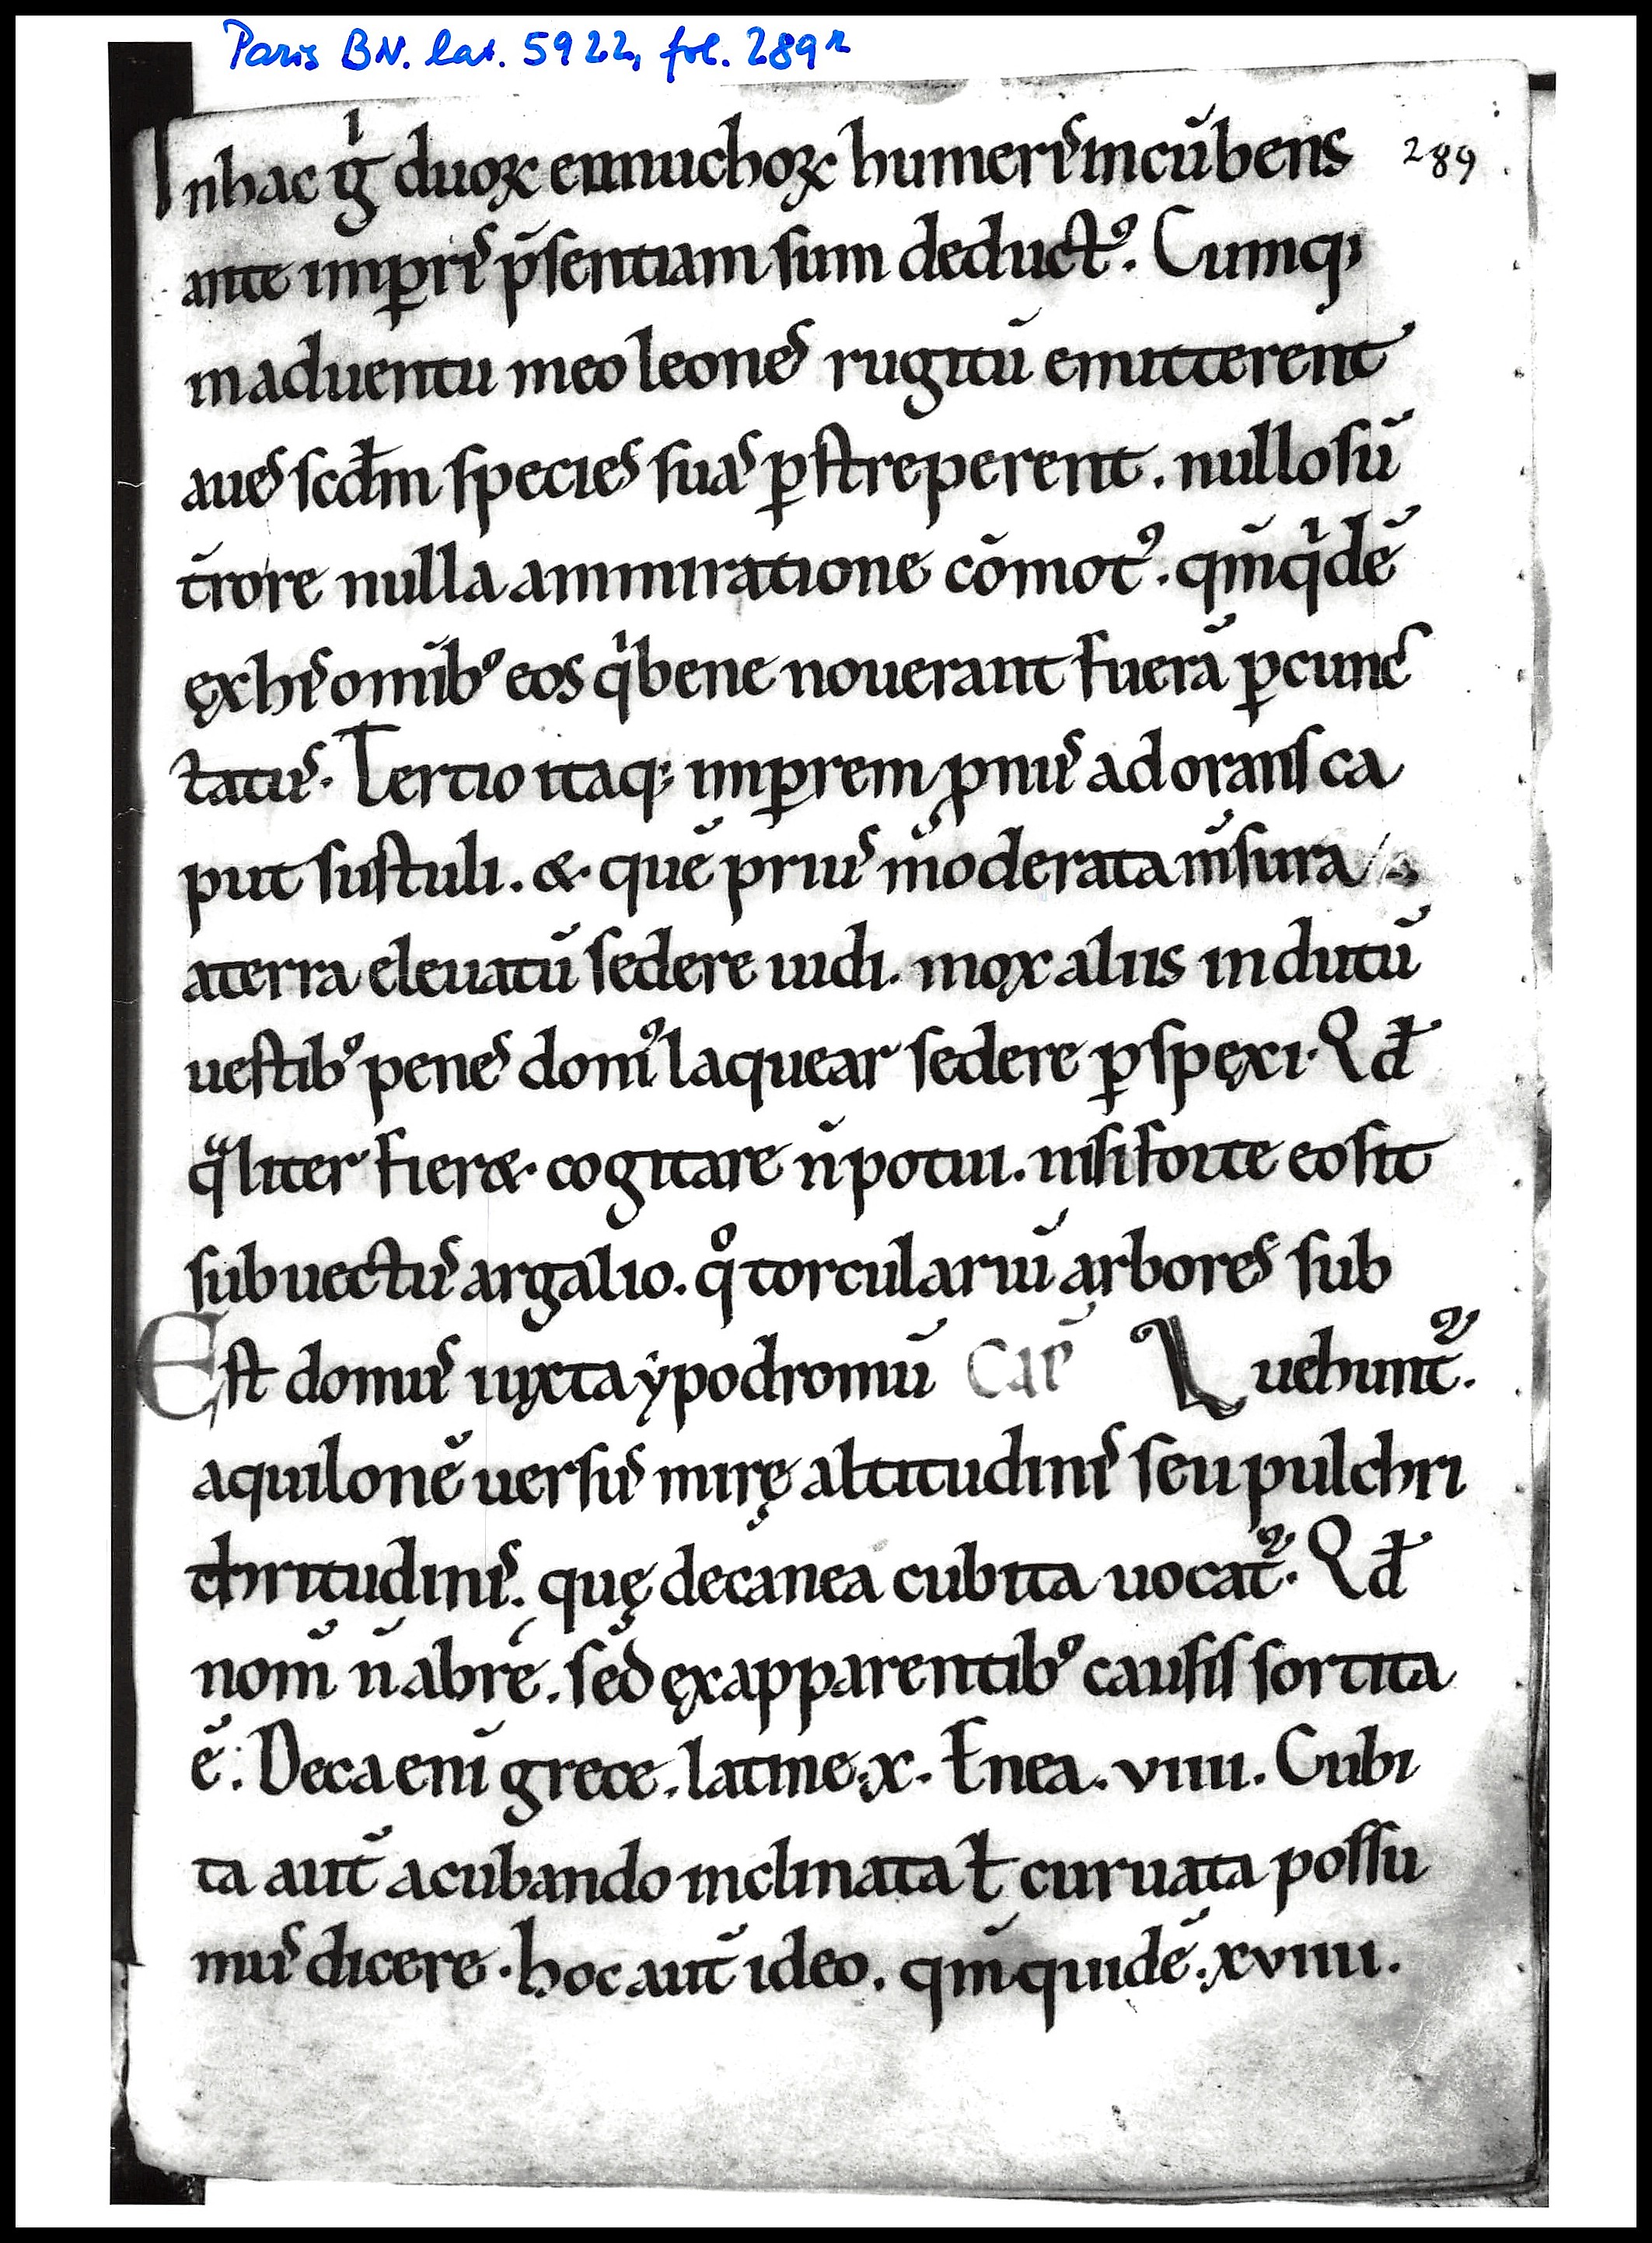 Paris BN. lat. 5922, fol. 289r
289
In hac gͥ duoꝝ eunuchoꝝ humeris incūbens
ante imꝑris p̄sentiam sum deductꝰ. Cumq;
in aduentu meo leones rugitū emitterent
aues scđm species suas ꝑstreperent. nullo sū
t̄rore nulla ammiratione cōmotꝰ. qm̄ qͥdē
ęx his omībꝰ eos qͥ bene nouerant fuerā ꝑcunc
tatus. Tertio itaq; imꝑrem ꝓnus adorans ca
put sustuli. & quē prius moderata m̄sura
a terra eleuatū sedere uidi. mox aliis indutū
uestibꝰ penes domꝰ laquear sedere ꝑspęxi. Qđ
qᷓliter fier& cogitare n̄ potui. nisi forte eo sit
subuectus argalio. qͦ torculariū arbores sub
Est domus iuxta ypodromū Cap̄ L uehunt᷑.
aquilonē uersus mirę altitudinis seu pulchri
chritudinis. quę decanea cubita uocat᷑. Qđ
nom̄ n̄ ab re. sed ęx apparentibꝰ causis sortita
ē. Deca enī grece. latine .x. Enea. viiii. Cubi
ta aut̄ a cubando inclinata ł curuata possu
mus dicere. hoc aut̄ ideo. qm̄ quidē .xviiii.